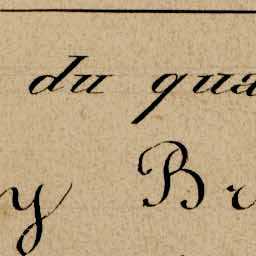 du qua
y Br